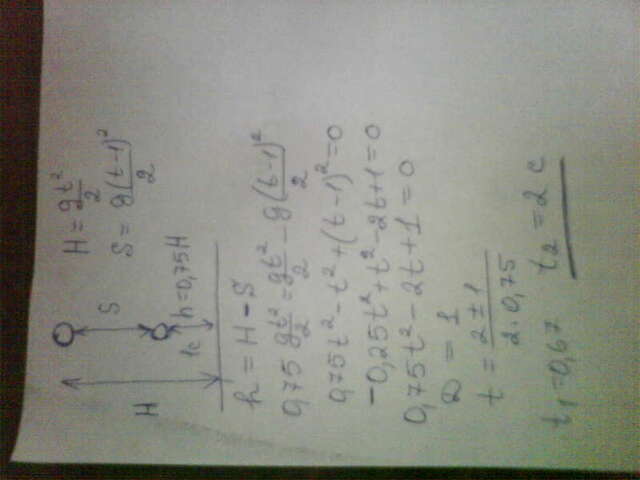 H = gt²/2
S = g(t-1)²/2
S
H
1c
h=0,75H
h = H - S
0,75 gt²/2 = gt²/2 - g(t-1)²/2
0,75t² - t² + (t-1)² = 0
-0,25t² + t² - 2t + 1 = 0
0,75t² - 2t + 1 = 0
D = 1
t = 2±1/2·0,75
t₁ = 0,67 t₂ = 2 c